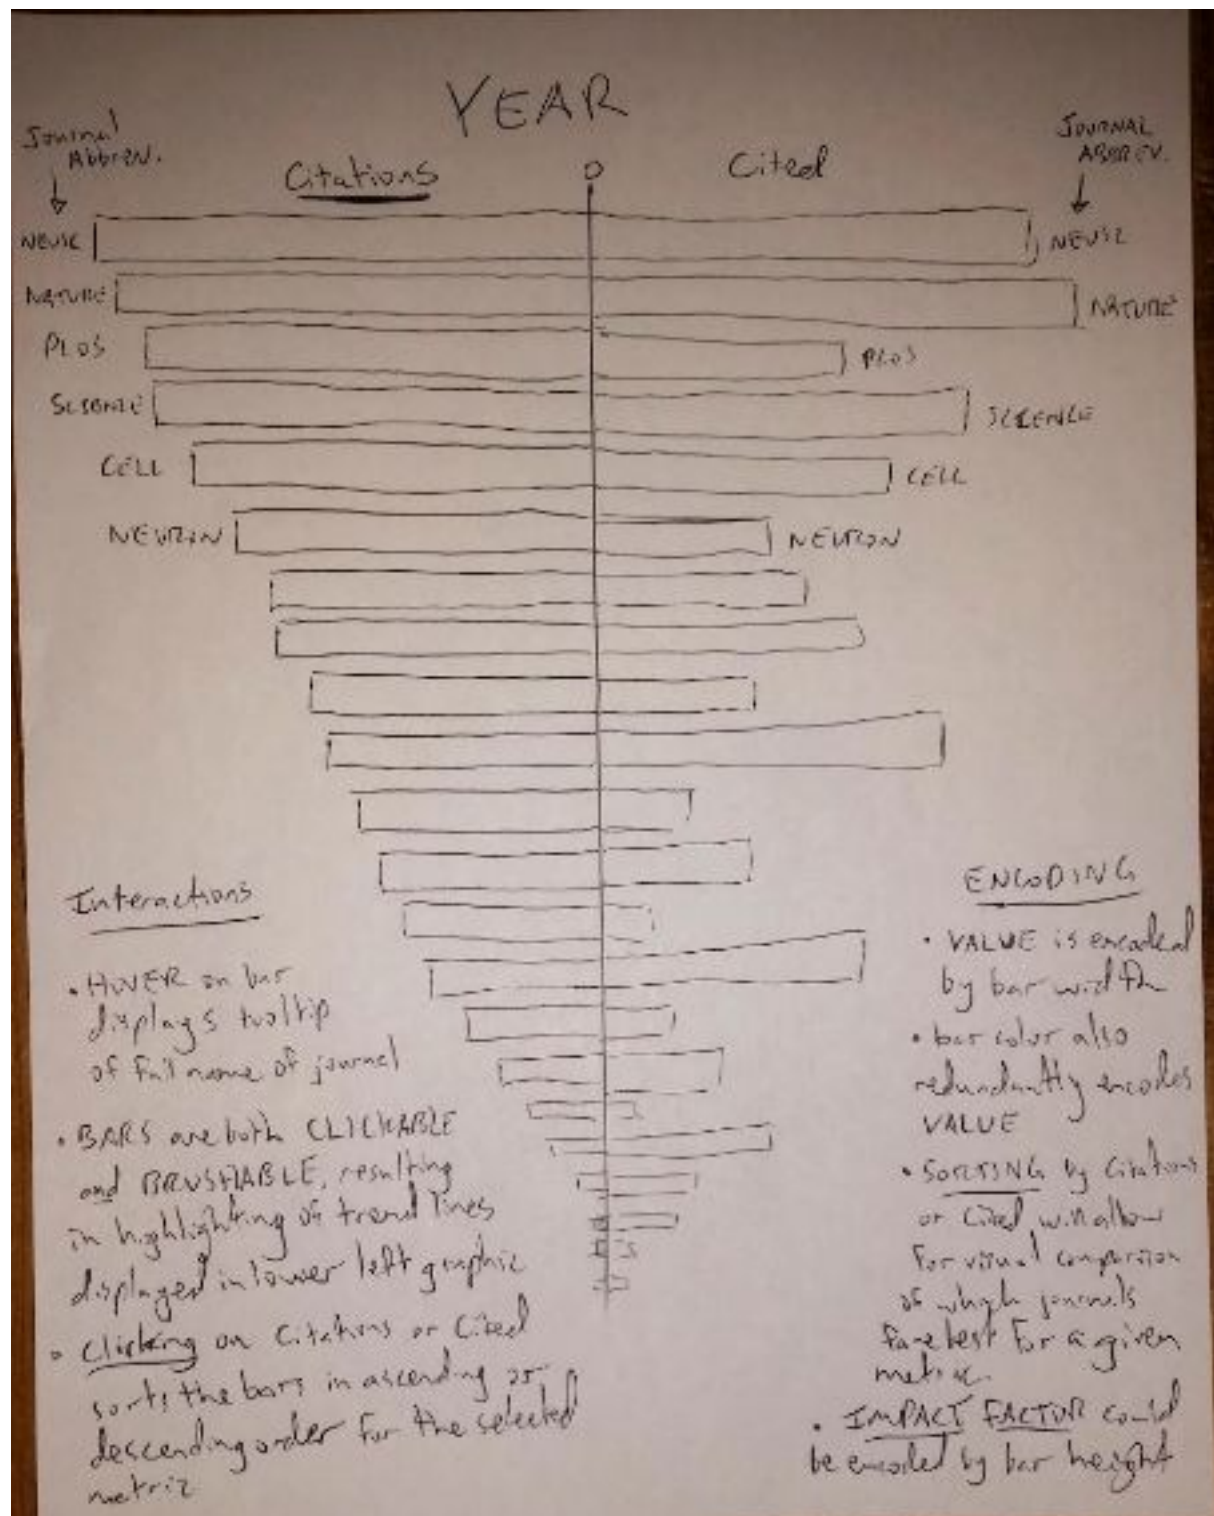 YEAR
Journal
Abbrev.
JOURNAL
ABBREV.
Citations
0
Cited
NEUSC
NEUSC
NATURE
NATURE
PLOS
PLOS
SCIENCE
SCIENCE
CELL
CELL
NEURON
NEURON
Interactions
• HOVER on bar
displays tooltip
of full name of journal
• BARS are both CLICKABLE
and BRUSHABLE, resulting
in highlighting of trend lines
displayed in lower left graphic
• Clicking on Citations or Cited
sorts the bars in ascending or
descending order for the selected
metric
ENCODING
• VALUE is encoded
by bar width
• bar color also
redundantly encodes
VALUE
• SORTING by Citations
or Cited will allow
for visual comparison
of which journals
fare best for a given
metric
• IMPACT FACTOR could
be encoded by bar height